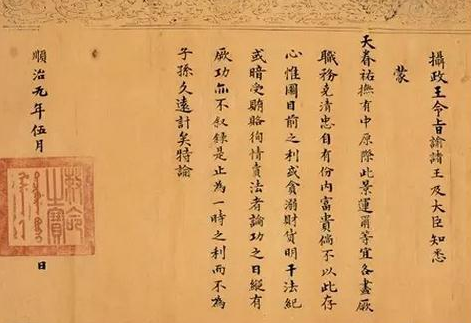 攝政王令旨諭諸王及大臣知悉
蒙
天眷祐撫有中原際此景運爾等宜各盡厥
職務克清忠自有份内富貴倘不以此存
心惟圖目前之利或貪溺財貨明干法紀
或暗受賄賂徇情賣法者論功之日縱有
厥功亦不叙錄是止為一時之利而不為
子孫久遠計矣特諭
順治元年伍月 日
敕命
之寶